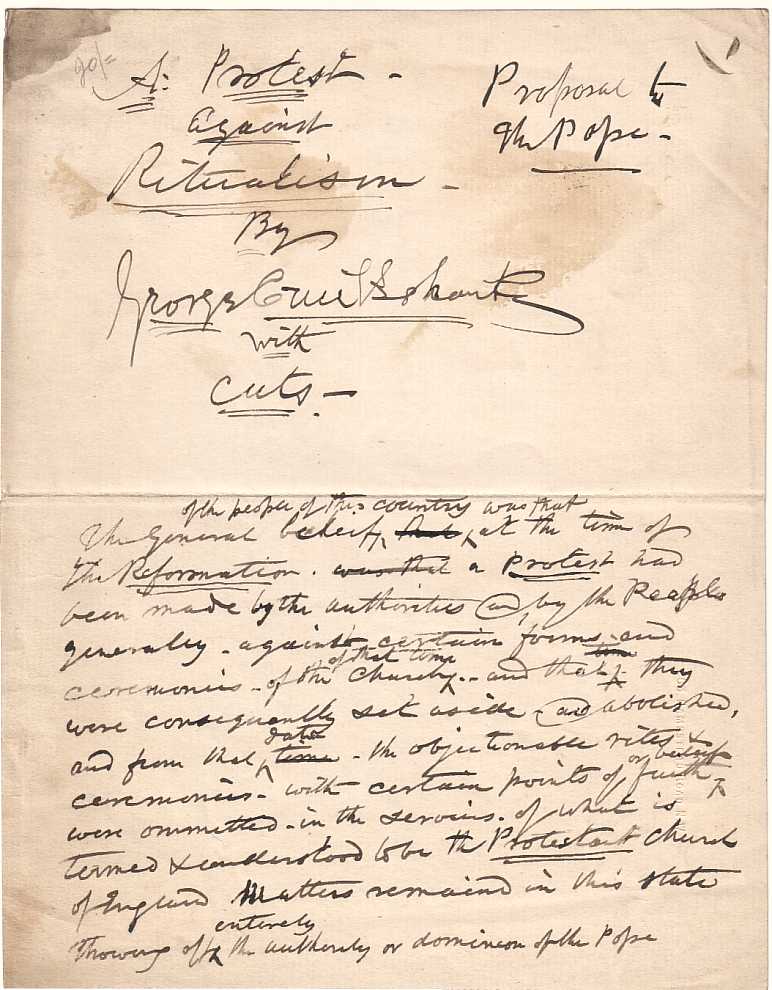 20/=
A. Protest -
against
Ritualism -
By
George Cruikshank
with
cuts -
Proposal to
the Pope -
of the people of this country was that
The General beleif, at the time of
the Reformation. was that a Protest had
been made by the authorities and, by the People
generally - against certain forms - and
of that time
ceremonies - of the Church - and that time they
were consequently set aside - and abolished,
date
and from that time - the objectionable rites &
or beleif
ceremonies - with certain points of faith
were ommitted - in the services - of what is
termed & understood to be the Protestant Church
of England Matters remained in this state
entirely
Throwing off the authority or dominion of the Pope